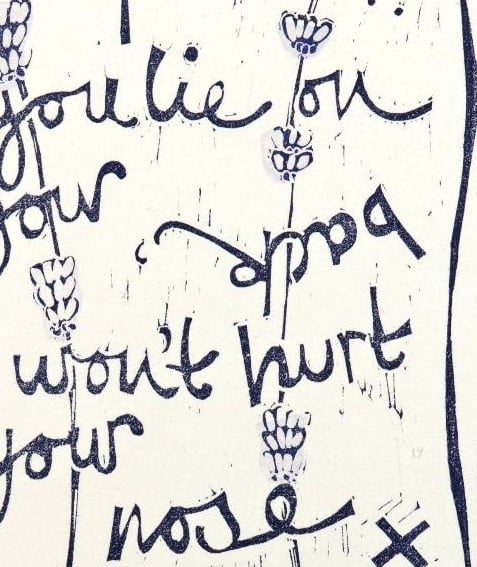 you lie on
your
back,
won't hurt
your
nose x